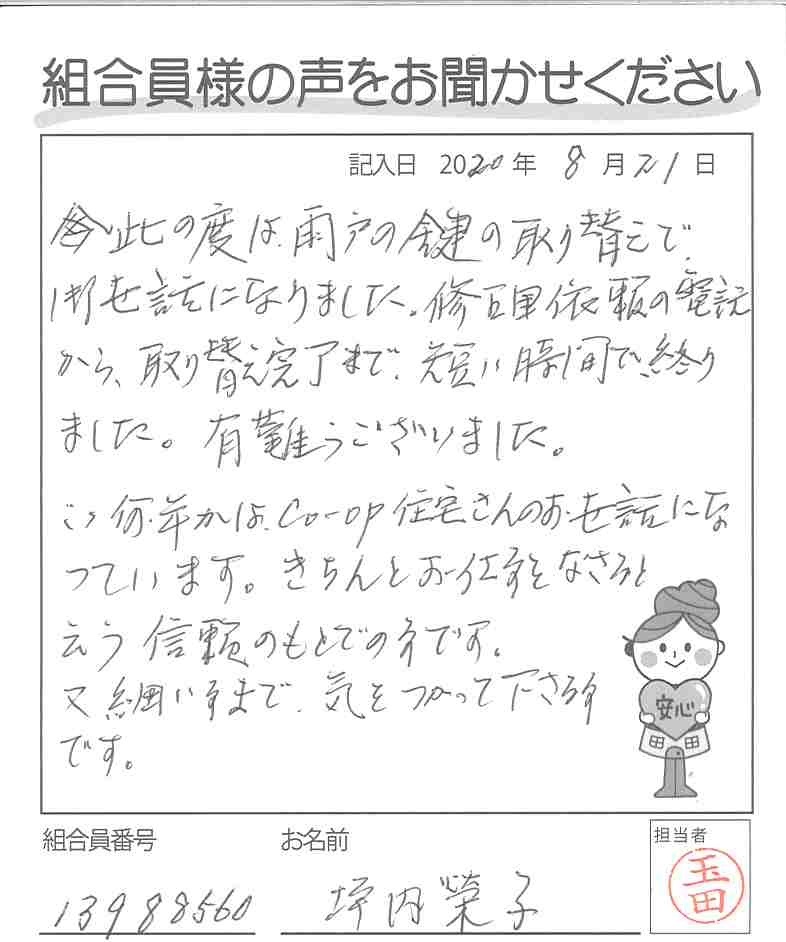 組合員様の声をお聞かせください
記入日 2020年 8月21日
此の度は、雨戸の鍵の取り替えで、
御世話になりました。修理依頼の電話
から、取り替え完了まで、短い時間で終り
ました。有難うございました。
ここ何年かは、Co-op住宅さんのお世話にな
っています。きちんとお仕事をなさると
云う信頼のもとでの事です。
又細い事まで、気をつかって下さる事
です。
安心
組合員番号 お名前 担当者
13988560 坪内榮子 玉田